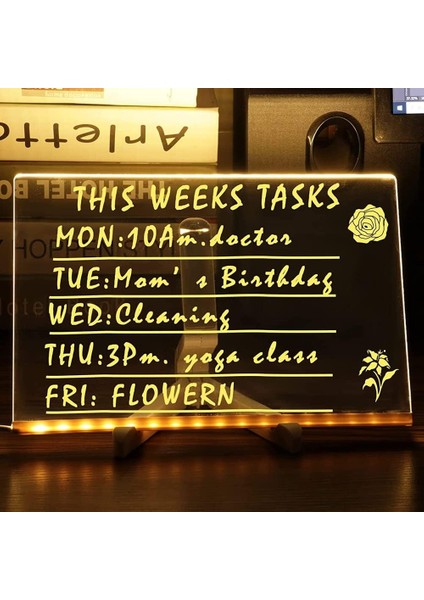 Arletto
THE HOTEL BO
HOPPEN STYLE
THIS WEEKS TASKS
MON:10Am.doctor
TUE:Mom's Birthday
WED:Cleaning
THU:3Pm. yoga class
FRI: FLOWERN